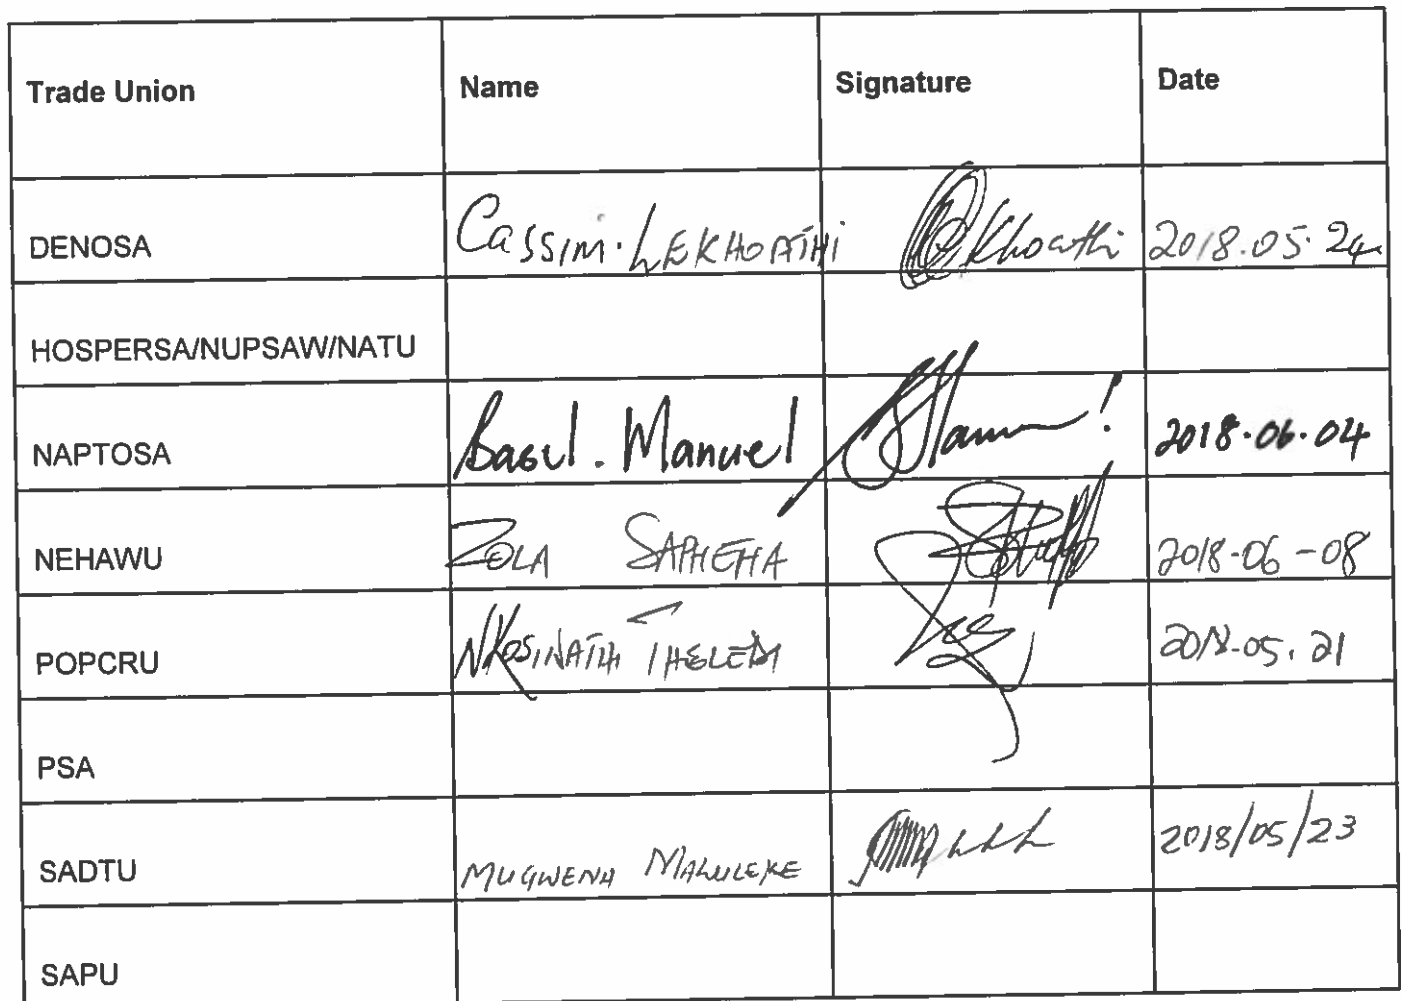 Trade Union Name Signature Date
DENOSA Cassim. LEKHOATHI Khoathi 2018.05.24
HOSPERSA/NUPSAW/NATU
NAPTOSA Basil. Manuel 2018.06.04
NEHAWU ZOLA SAPHETHA 2018-06-08
POPCRU NKOSINATHI THELEDI 2018.05.21
PSA
SADTU MUGWENA MALULEKE 2018/05/23
SAPU